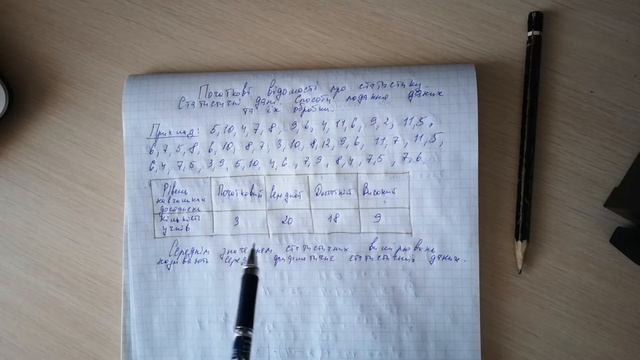 Початкові відомості про статистику.
Статистичні дані. Способи подання даних
та їх обробки.
Приклад: 5, 10, 4, 7, 8, 9, 6, 4, 11, 6, 9, 2, 11, 5,
6, 7, 5, 8, 6, 10, 8, 7, 3, 10, 8, 12, 9, 6, 11, 7, 11, 5,
6, 4, 7, 5, 3, 9, 5, 10, 4, 6, 7, 9, 8, 4, 7, 5, 7, 6.
Рівень навчальних досягнень Початковий Середній Достатній Високий
Кількість учнів 3 20 18 9
Середнім значенням статистичних
називають середнє арифметичне статистичних даних.